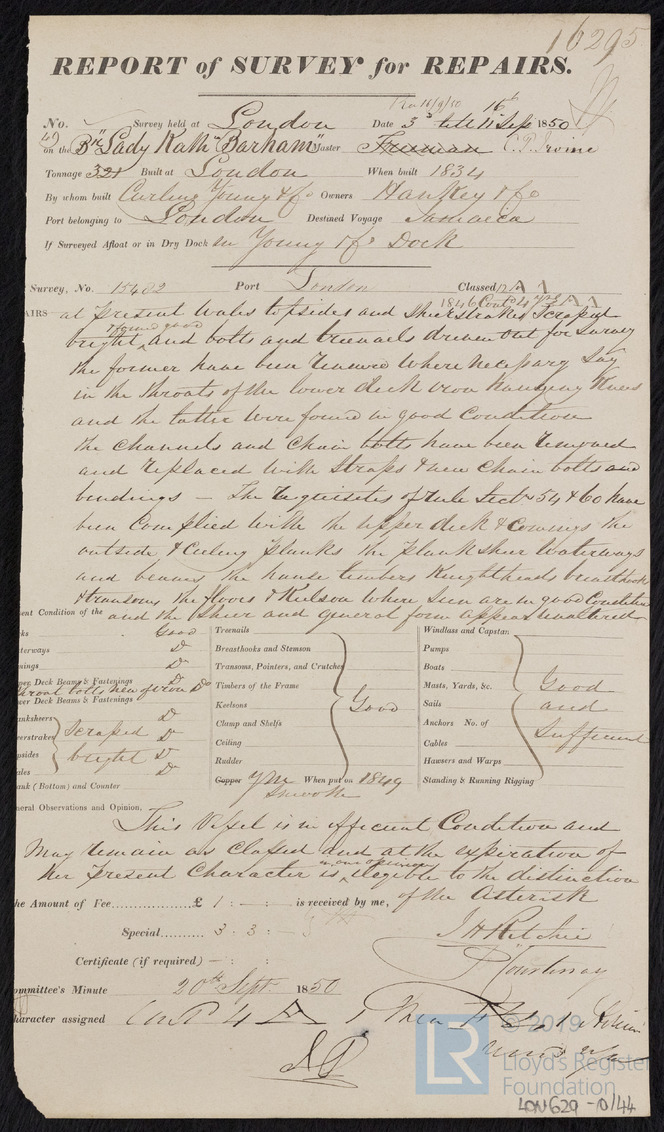 16295
REPORT of SURVEY for REPAIRS.
No. Survey held at London Date 3d till 11th Sep 16th 1850
on the Bk "Lady Kath. Barham" Master Freeman C. P. Irvine
Tonnage 321 Built at London When built 1834
By whom built Curling Young & Co Owners Hankey & Co
Port belonging to London Destined Voyage Jamaica
If Surveyed Afloat or in Dry Dock in Young & Co Dock
Survey, No. 15482 Port London Classed 12 A 1
1846 Contd 4 yrs A 1
AIRS at present Wales topsides and Sheerstrakes Scraped
bright & found good and bolts and treenails driven out for Survey
the former have been renewed where necessary say
in the throats of the lower deck iron hanging Knees
and the latter were found in good Condition
the channels and chain bolts have been removed
and replaced with straps & new chain bolts and
bindings — The requisites of rule Sects 54 & 60 have
been Complied with the upper deck & Comings the
outside & Ceiling planks the planksheer Waterways
and beams, the hause timbers Knightheads breasthooks
& transoms the floors & Keelson where seen are in good Condition
and the Sheer and general form appear unaltered
ent Condition of the
ks Good
terways Do
mings Do
per Deck Beams & Fastenings Do
throat bolts new of iron Do
wer Deck Beams & Fastenings
anksheers Do
eerstrakes Scraped Do
psides bright Do
ales Do
ank (Bottom) and Counter
Treenails
Breasthooks and Stemson
Transoms, Pointers, and Crutches
Timbers of the Frame
Keelsons Good
Clamp and Shelfs
Ceiling
Rudder
Copper YM When put on 1849
Smooth
Windlass and Capstan
Pumps
Boats
Masts, Yards, &c. Good
Sails and
Anchors No. of
Cables Sufficient
Hawsers and Warps
Standing & Running Rigging
neral Observations and Opinion.
This Vessel is in efficient Condition and
May remain as Classed and at the expiration of
her present Character is in our opinion elegible to the distinction
of the Asterisk
he Amount of Fee £ 1 : - : is received by me,
Special 3 : 3 : -
J H Ritchie
Certificate (if required) - : :
P Courtenay
ommittee's Minute 20th Sept. 1850
haracter assigned Contd 4 A 1
© 2019
LR
Lloyd's Register
Foundation
LON629-0144